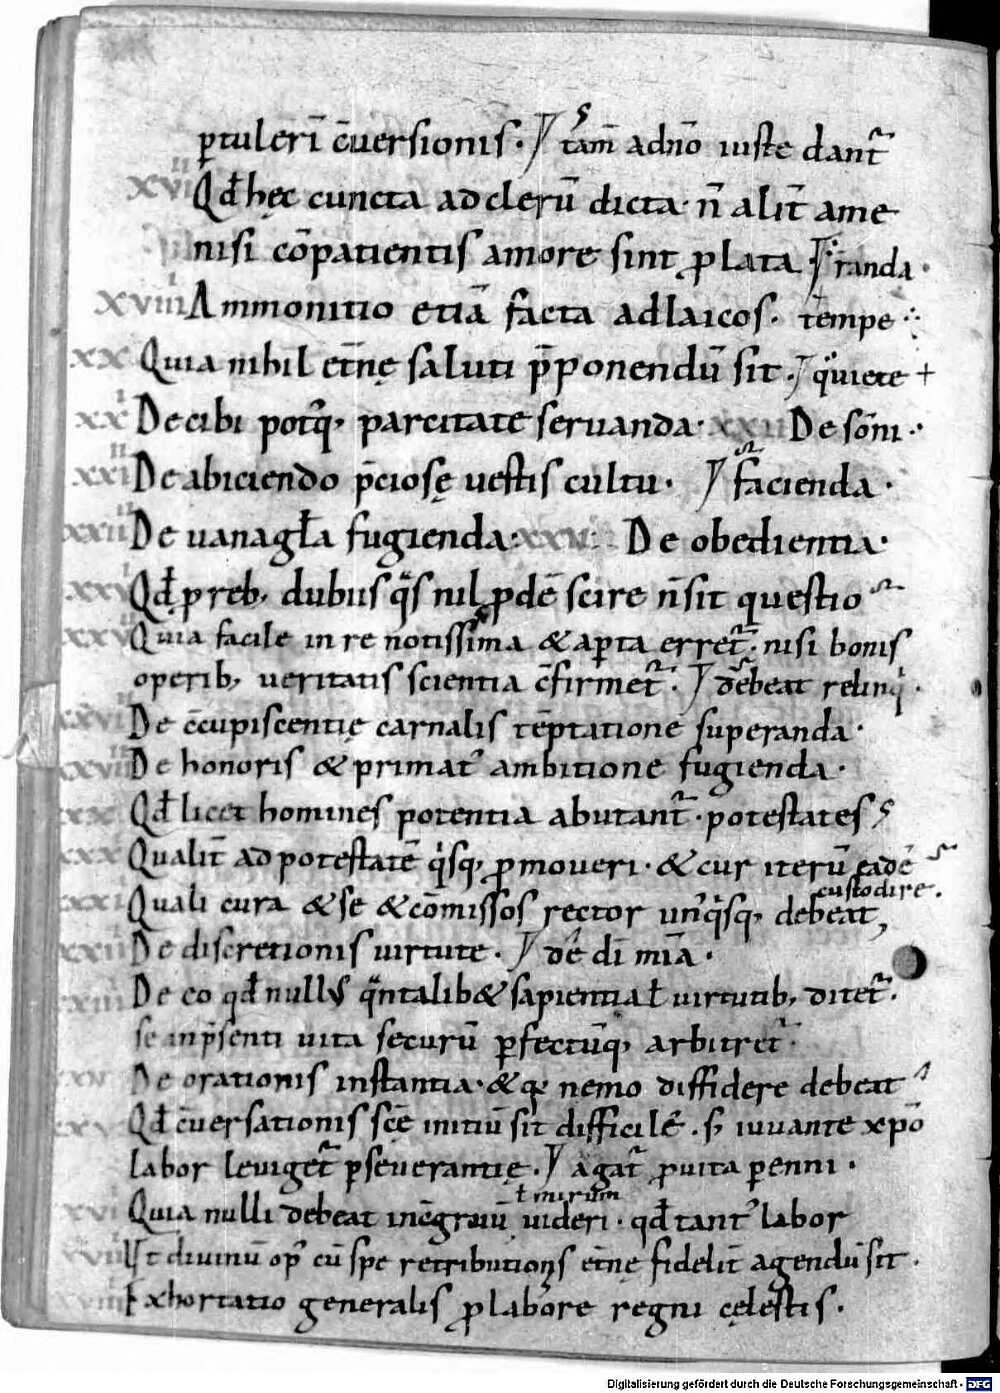 ptulerī c̄uersionis. tam̄ ad n̄o iuste dant᷑
XVIII Qđ hęc cuncta ad clerū dicta n̄ alit̄ ame
nisi cōpatientis amore sint ꝓlata randa.
XVIIII Ammonitio etiā facta ad laicos. tēmpe
XX Quia nihil et̄nę saluti p̄ponendū sit. quiete +
XXI De cibi potq; parcitate seruanda. XXII De som̄ni.
XXIII De abiciendo p̄ciosę uestis cultu. facienda.
De uanagła fugienda. De obedientia.
Qđ p reb; dubiis nil ꝓdē scire n̄ sit questio
Quia facile in re notissima & apta erret᷑. nisi bonis
operib; ueritatis scientia c̄firmet᷑. debeat relinqi.
De c̄cupiscentię carnalis tēptatione superanda.
De honoris & primat᷒ ambitione fugienda.
Qđ licet homines potentia abutant᷑. potestates s
Qualit̄ ad potestatē qisq; ꝓmoueri. & cur iterū eadē
custodire.
Quali cura & se & cōmissos rector un᷒qisq; debeat,
De discretionis uirtute. dē di mia.
De eo qđ null᷒ qantalib& sapientia ł uirtutib; ditet᷑.
se in p̄senti uita securū ꝑfectūq; arbitret᷑.
De orationis instantia. & qr nemo diffidere debeat
Qđ c̄uersationis scę initiū sit difficile. s; iuuante xpō
labor leuiget᷑ ꝑseuerantię. agat᷑ ꝓ uita ꝑenni.
ł mirum
Quia nulli debeat incgruū uideri. qđ tant᷒ labor
Ut diuinū op᷒ cū spe retributionis et̄nę fidelit̄ agendū sit.
Exhortatio generalis ꝓ labore regni cęlestis.
Digitalisierung gefördert durch die Deutsche Forschungsgemeinschaft - DFG